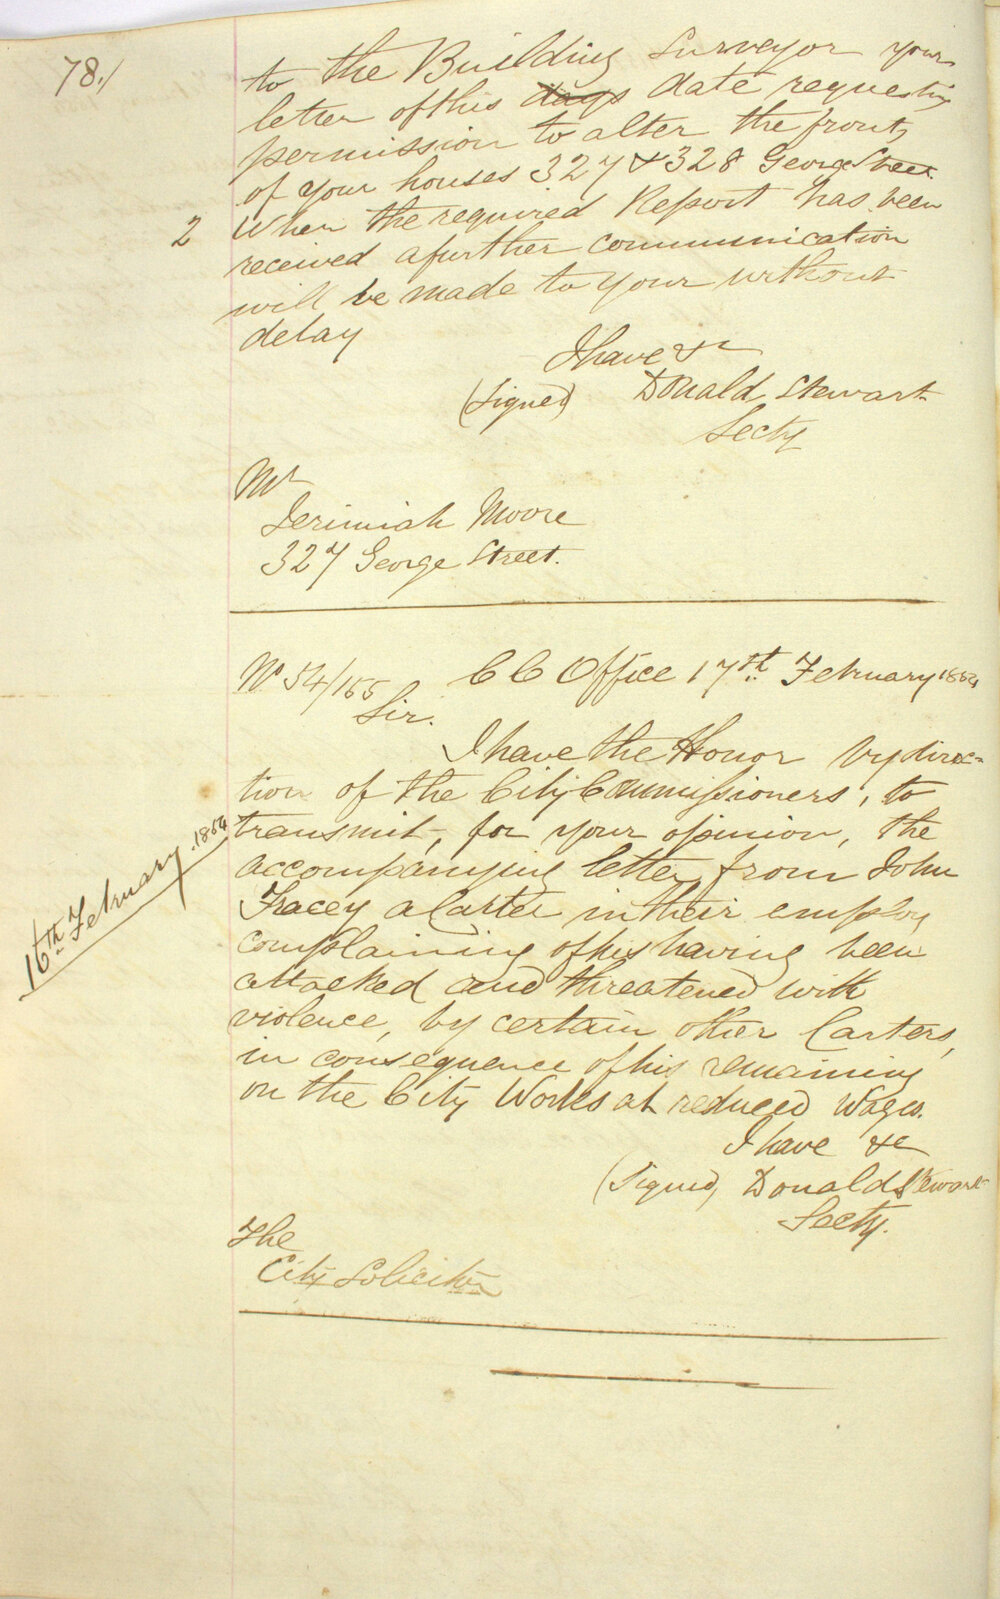 78./
to the Building Surveyor your
letter of this days date requesting
permission to alter the fronts
of your houses 327 & 328 George Street
2 When the required Report has been
received a further communication
will be made to your without
delay
I have &c
(Signed) Donald Stewart
Secty
Mr
Jerimiah Moore
327 George Street.
No 54/155 C C Office 17th. February 1854
Sir.
I have the Honor by direc-
tion of the City Commissioners, to
transmit, for your opinion, the
accompanying letter from John
Tracey a Carter in their employ
complaining of his having been
attacked and threatened with
violence, by certain other Carters,
in consequence of his remaining
on the City Works at reduced Wages.
16th February. 1854
I have &c
(Signed, Donald Stewart
Secty.
The
City Solicitor